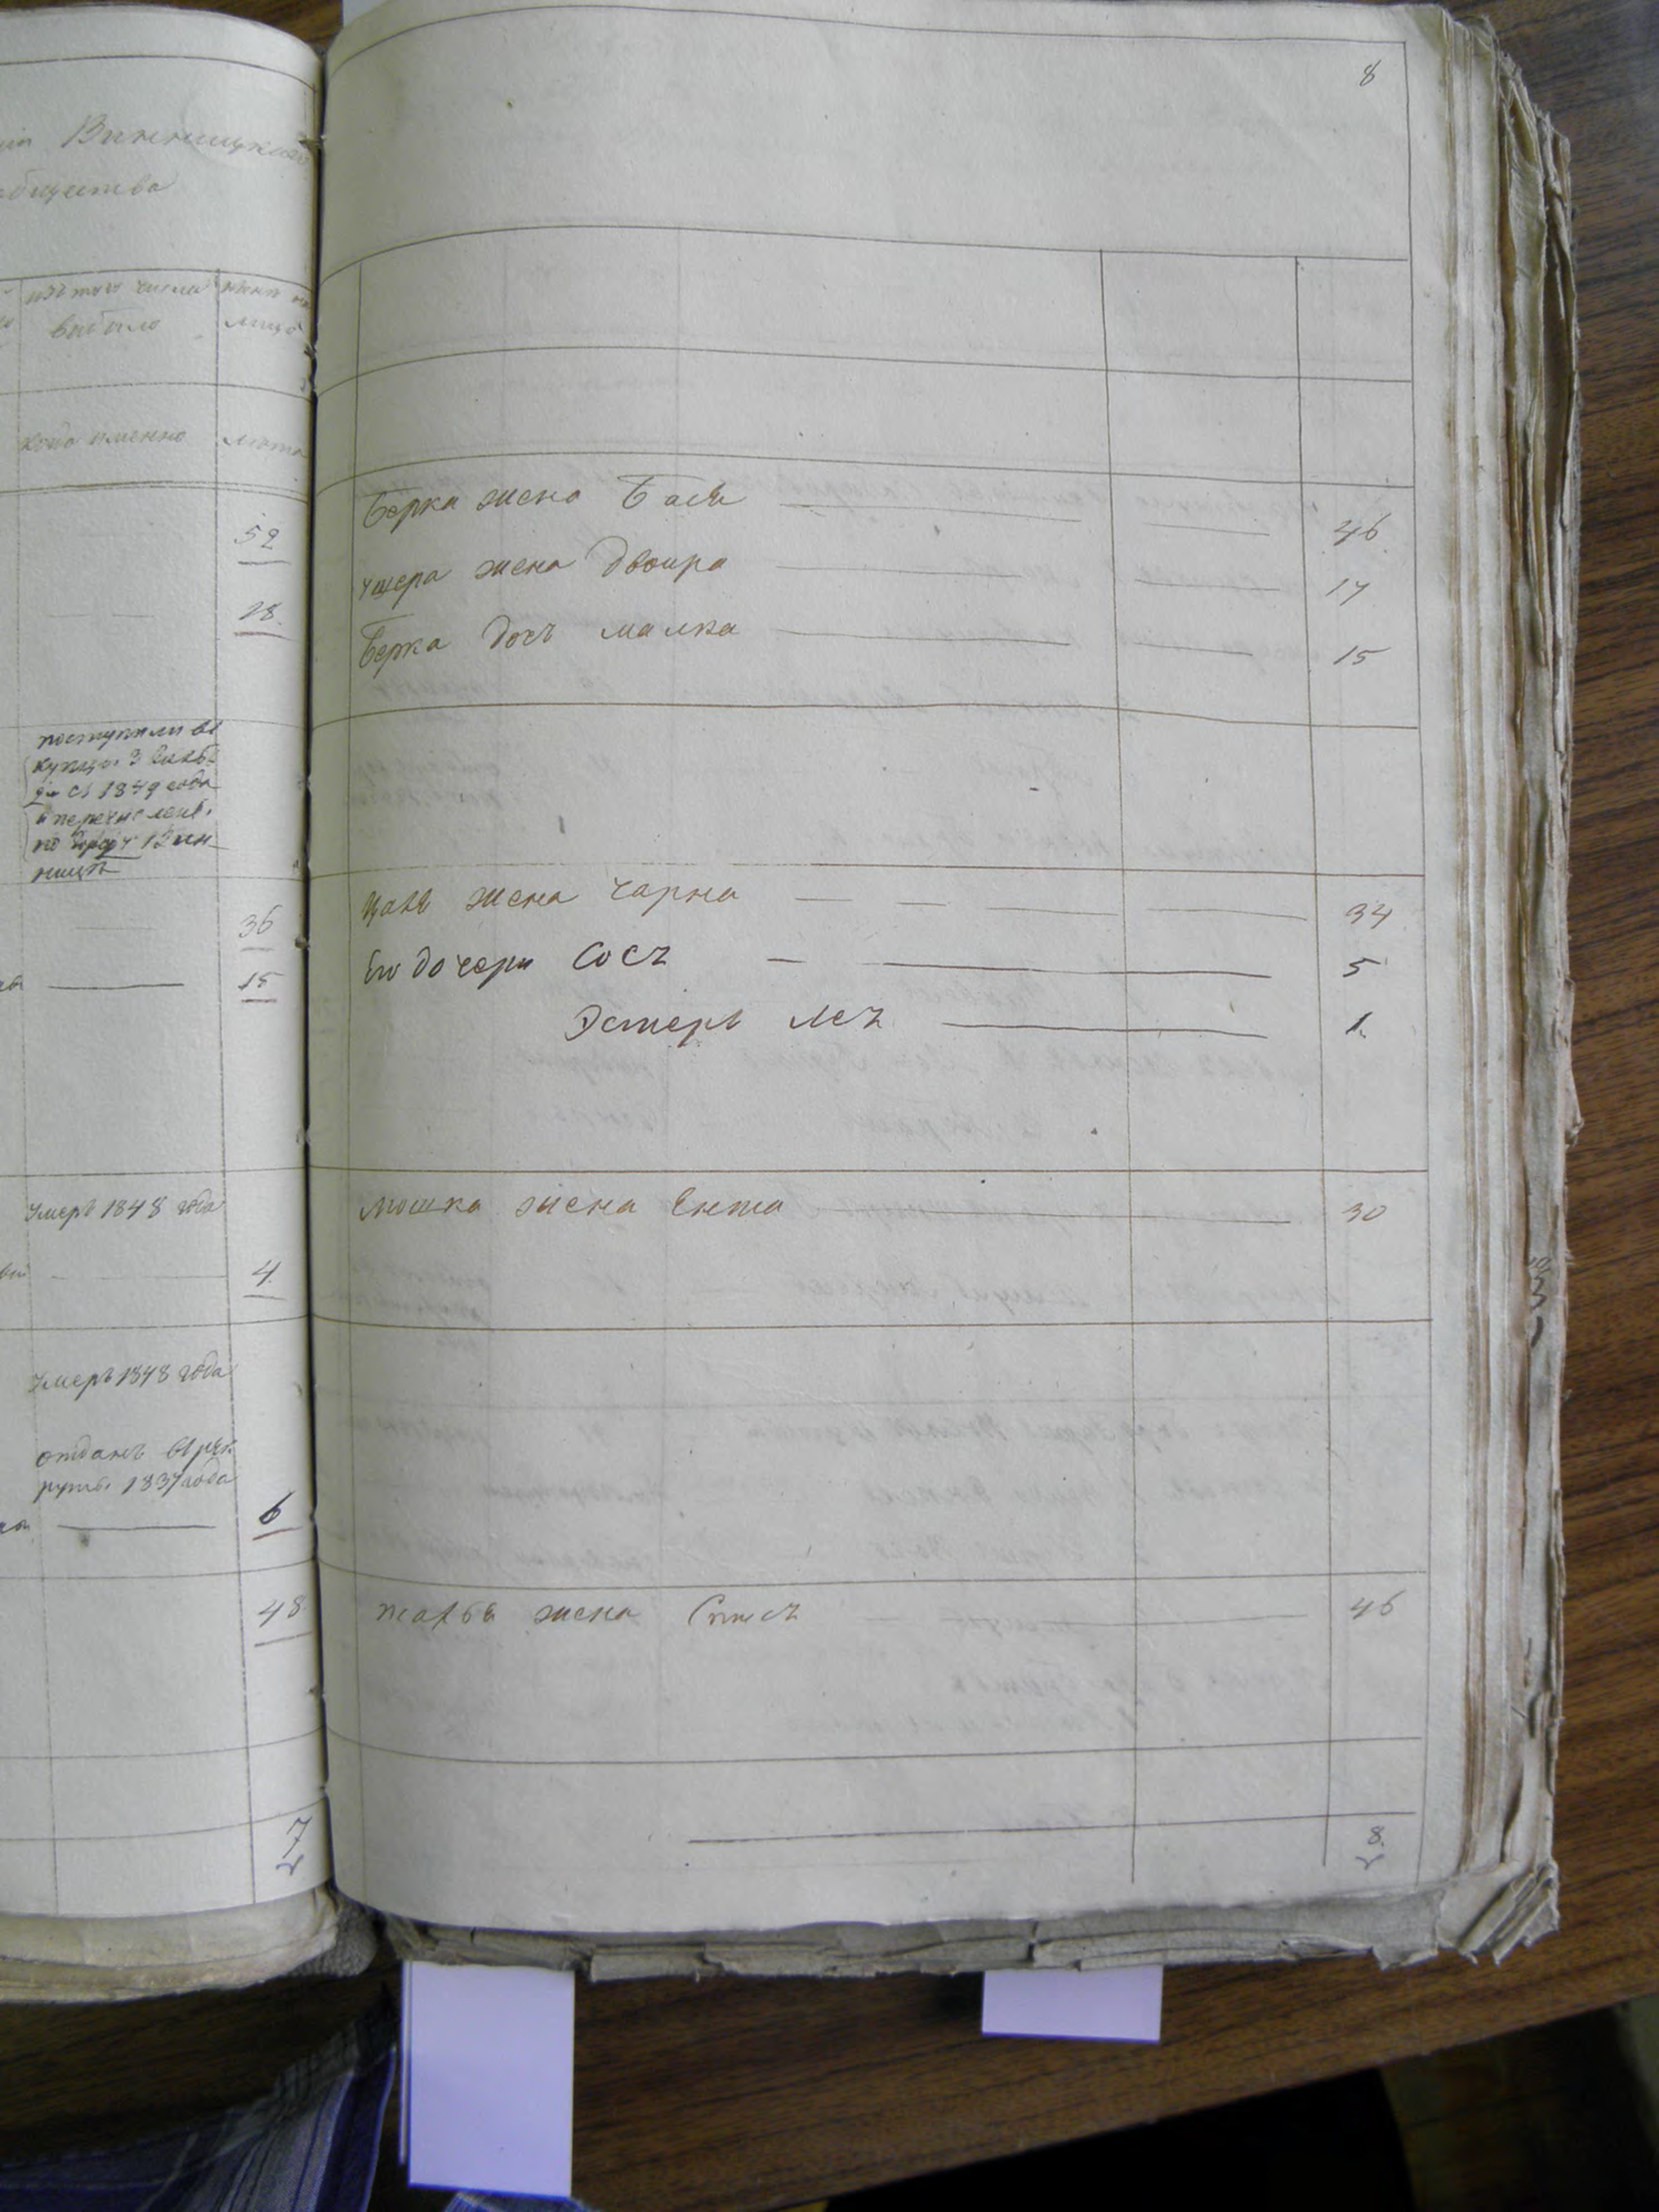 Винницкаго
общества
изъ того числа
выбыло
лицо
когда именно
лета
52
28
поступили въ
купцы 3 гильд
съ 1849 года
перечислен.
по городу Вин-
ницѣ
36
15
умеръ 1848 года
4
умеръ 1848 года
отданъ въ рек
руты 1837 года
6
48
7
8
Берка жена Бася 46
жена Двойра 17
Берка дочь Малка 15
жена Чарна 34
Его дочери Сося 5
Эстеръ Лея 1
Мошка жена Ента 30
жена 46
8